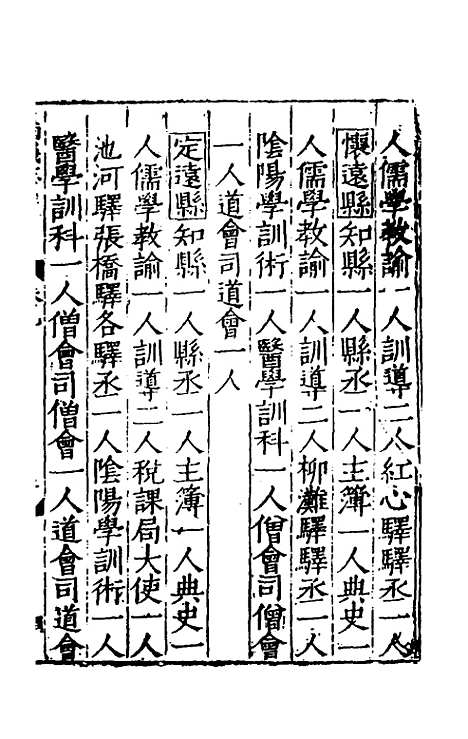 人儒學教諭一人訓導二人紅心驛驛丞一人
懷遠縣知縣一人縣丞一人主簿一人典史一
人儒學教諭一人訓導二人柳灘驛驛丞一人
陰陽學訓術一人醫學訓科一人僧會司僧會
一人道會司道會一人
定遠縣知縣一人縣丞一人主簿一人典史一
人儒學教諭一人訓導二人稅課局大使一人
池河驛張橋驛各驛丞一人陰陽學訓術一人
醫學訓科一人僧會司僧會一人道會司道會